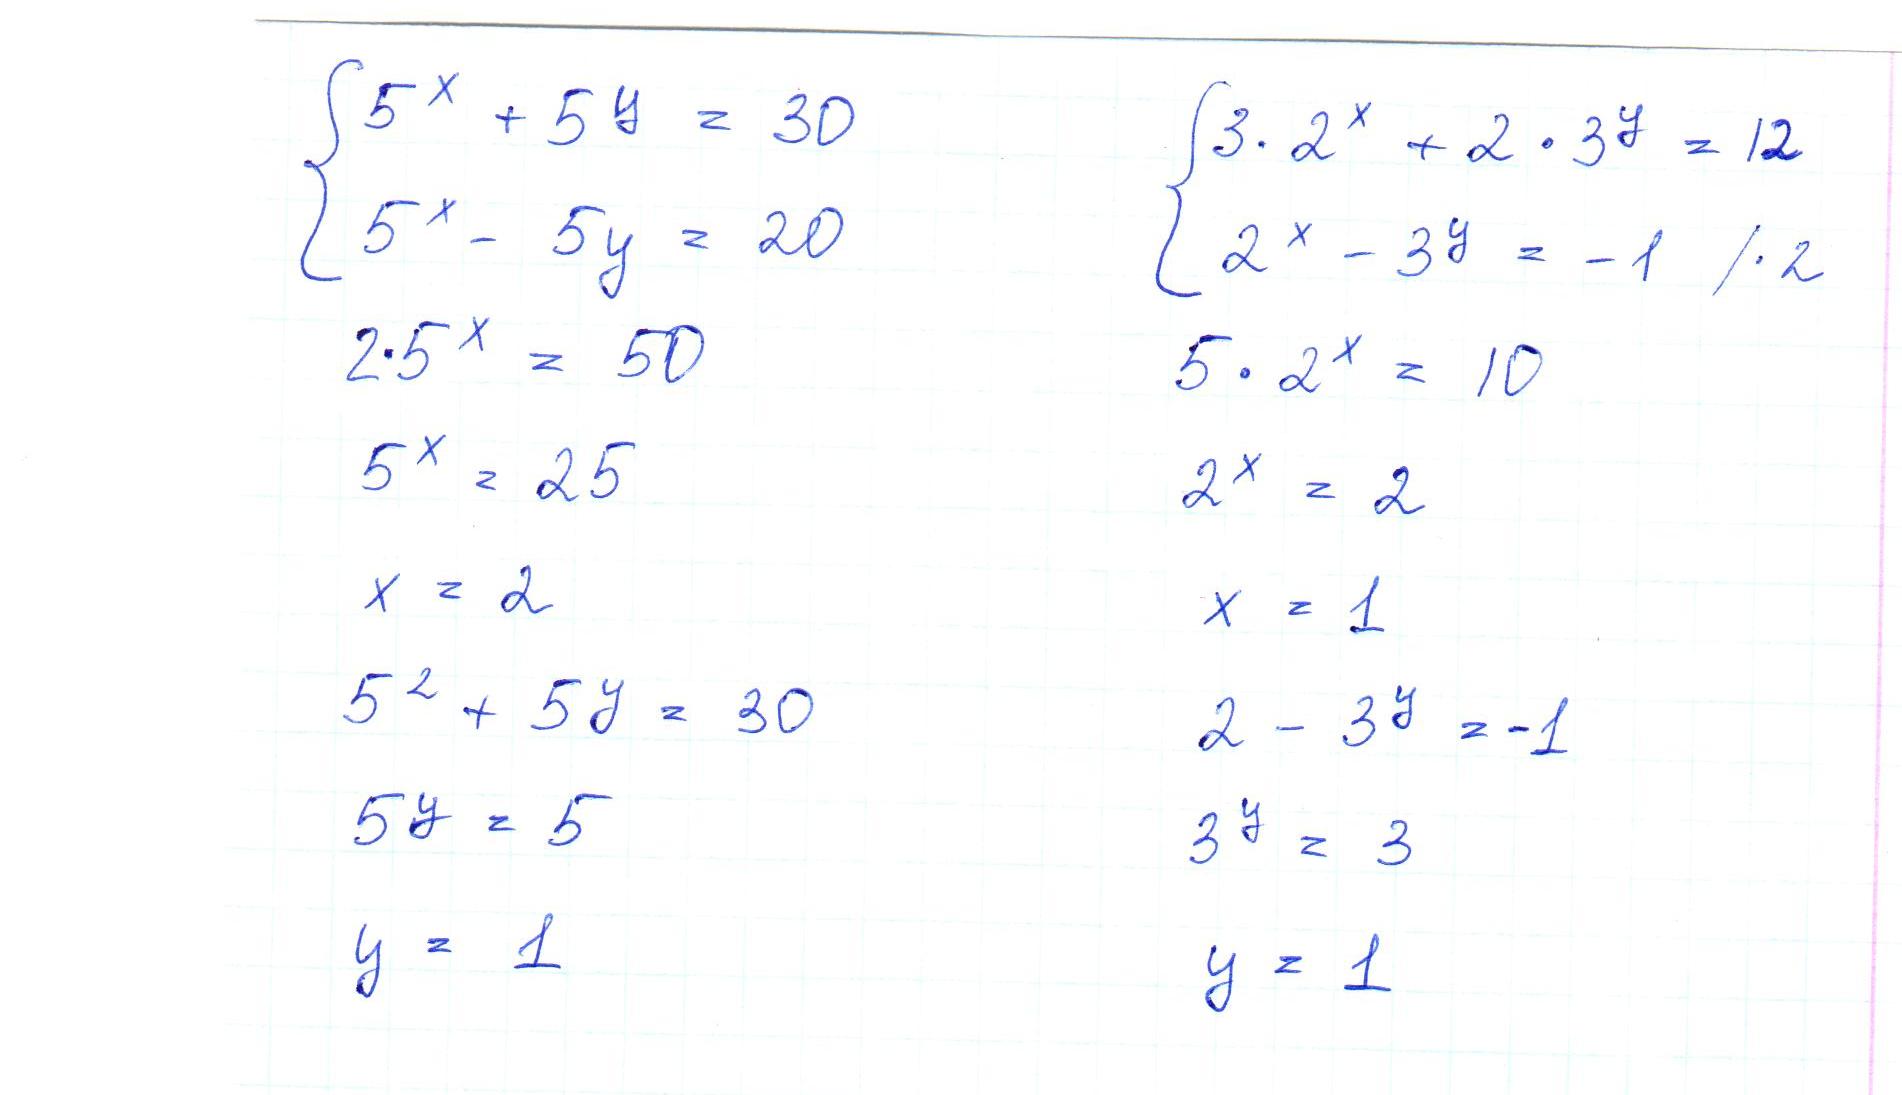 5^x + 5^y = 30
5^x - 5y = 20
2·5^x = 50
5^x = 25
x = 2
5^2 + 5^y = 30
5^y = 5
y = 1
3·2^x + 2·3^y = 12
2^x - 3^y = -1 /·2
5·2^x = 10
2^x = 2
x = 1
2 - 3^y = -1
3^y = 3
y = 1